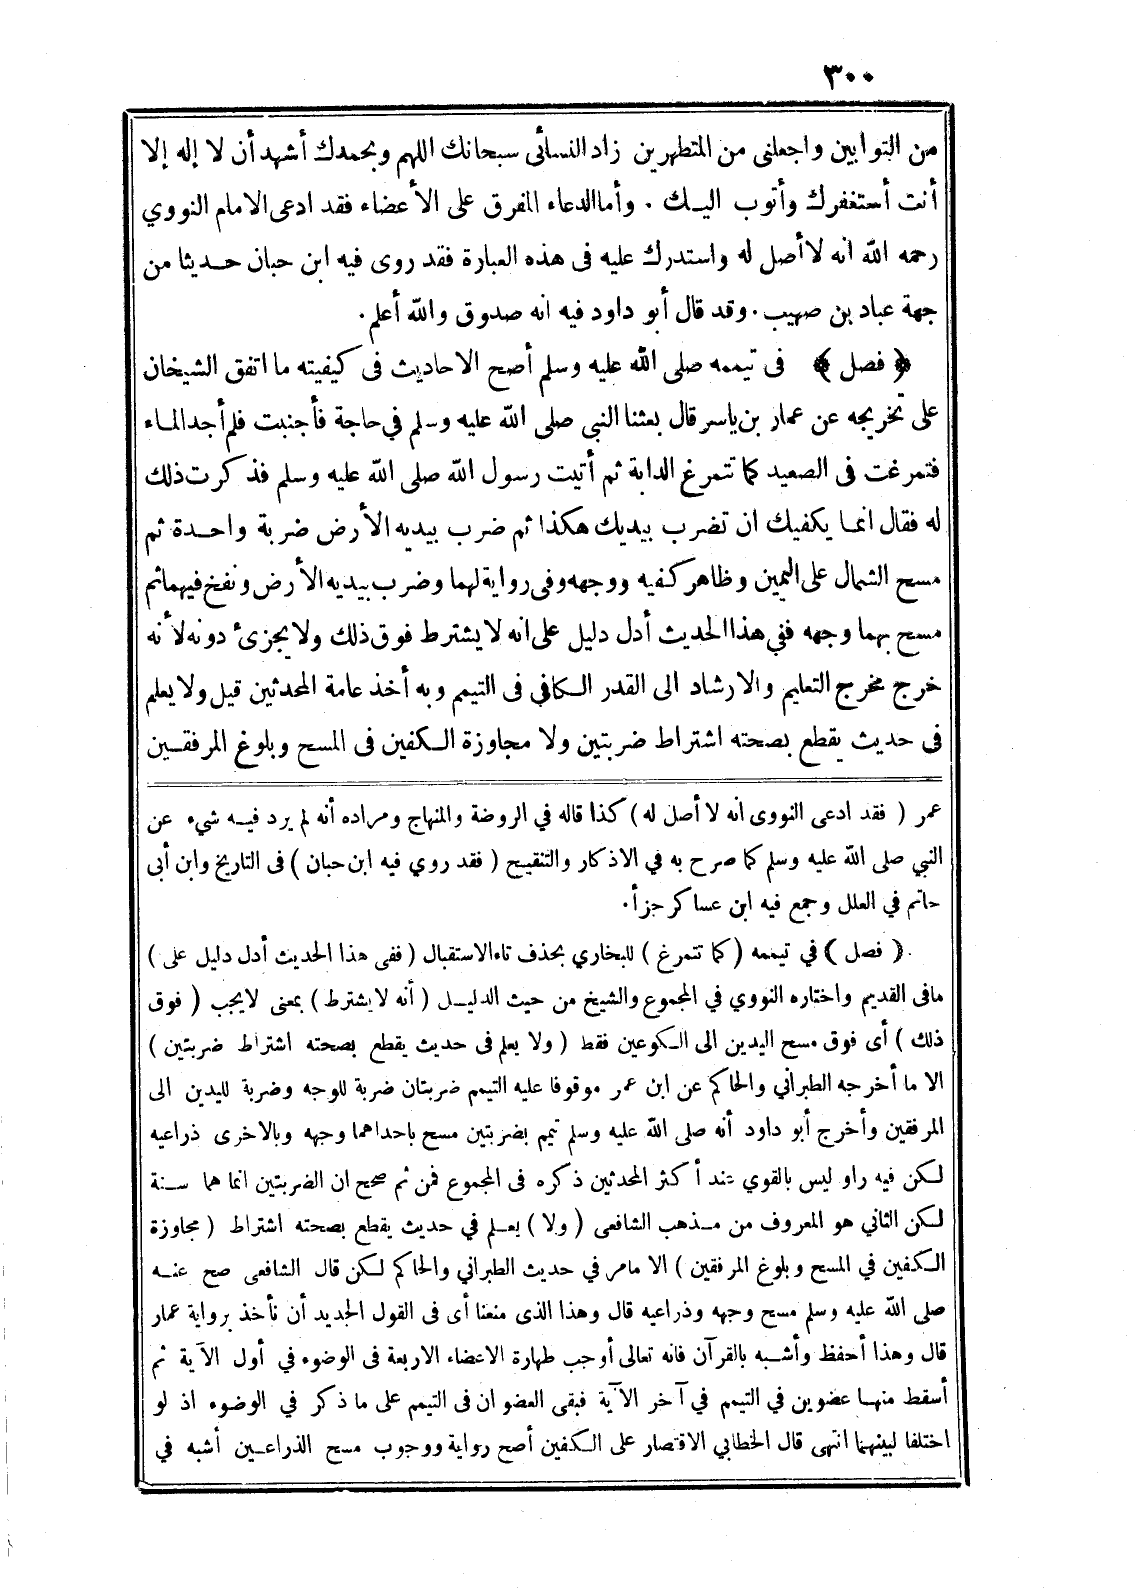 ٣٠٠
من التوابين واجعلنى من المتطهرين زاد النسائى سبحانك اللهم وبحمدك أشهد أن لا إله إلا
أنت أستغفرك وأتوب اليك . وأما الدعاء المفرق على الأعضاء فقد ادعى الامام النووي
رحمه الله انه لا أصل له واستدرك عليه فى هذه العبارة فقد روى فيه ابن حبان حديثا من
جهة عباد بن صهيب . وقد قال أبو داود فيه انه صدوق والله أعلم .
﴿ فصل ﴾ فى تيممه صلى الله عليه وسلم أصح الاحاديث فى كيفيته ما اتفق الشيخان
على تخريجه عن عمار بن ياسر قال بعثنا النبي صلى الله عليه وسلم في حاجة فأجنبت فلم أجد الماء
فتمرغت فى الصعيد كما تتمرغ الدابة ثم أتيت رسول الله صلى الله عليه وسلم فذكرت ذلك
له فقال انما يكفيك ان تضرب بيديك هكذا ثم ضرب بيديه الأرض ضربة واحدة ثم
مسح الشمال على اليمين وظاهر كفيه ووجهه وفى رواية لهما وضرب بيديه الأرض ونفخ فيهما ثم
مسح بهما وجهه ففي هذا الحديث أدل دليل على انه لا يشترط فوق ذلك ولا يجزئ دونه لأنه
خرج مخرج التعليم والارشاد الى القدر الكافي فى التيمم وبه أخذ عامة المحدثين قيل ولا يعلم
في حديث يقطع بصحته اشتراط ضربتين ولا مجاوزة الكفين فى المسح وبلوغ المرفقين
عمر ( فقد ادعى النووى انه لا أصل له ) كذا قاله في الروضة والمنهاج ومراده أنه لم يرد فيه شيء عن
النبي صلى الله عليه وسلم كما صرح به في الاذكار والتنقيح ( فقد روي فيه ابن حبان ) فى التاريخ وابن أبى
حاتم في العلل وجمع فيه ابن عساكر جزأ .
﴿ فصل ﴾ في تيممه ( كما تتمرغ ) للبخاري بحذف تاء الاستقبال ( ففى هذا الحديث أدل دليل على )
مافى القديم واختاره النووي في المجموع والشيخ من حيث الدليل ( أنه لا يشترط ) بمعنى لايجب ( فوق
ذلك ) أى فوق مسح اليدين الى الكوعين فقط ( ولا يعلم فى حديث يقطع بصحته اشتراط ضربتين )
الا ما أخرجه الطبراني والحاكم عن ابن عمر موقوفا عليه التيمم ضربتان ضربة للوجه وضربة لليدين الى
المرفقين وأخرج أبو داود أنه صلى الله عليه وسلم تيمم بضربتين مسح باحداهما وجهه وبالاخرى ذراعيه
لكن فيه راو ليس بالقوي عند أكثر المحدثين ذكره فى المجموع فمن ثم صحح ان الضربتين انما هما سنة
لكن الثاني هو المعروف من مذهب الشافعى ( ولا ) يعلم في حديث يقطع بصحته اشتراط ( مجاوزة
الكفين في المسح وبلوغ المرفقين ) الا مامر في حديث الطبراني والحاكم لكن قال الشافعى صح عنه
صلى الله عليه وسلم مسح وجهه وذراعيه قال وهذا الذى منعنا أى فى القول الجديد أن نأخذ برواية عمار
قال وهذا أحفظ وأشبه بالقرآن فانه تعالى أوجب طهارة الاعضاء الاربعة فى الوضوء في أول الآية ثم
أسقط منها عضوين في التيمم في آخر الآية فبقى العضوان فى التيمم على ما ذكر في الوضوء اذ لو
اختلفا لبينهما انتهى قال الخطابي الاقتصار على الكفين أصح رواية ووجوب مسح الذراعين أشبه في